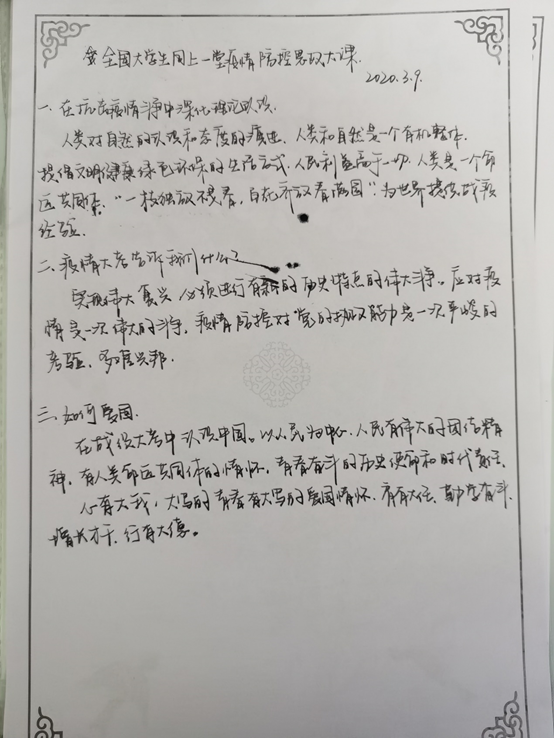 全国大学生同上一堂疫情防控思政大课
2020.3.9.
一.在抗击疫情斗争中深化理论认识.
人类对自然的认识和态度的演进.人类和自然是一个有机整体.
提倡文明健康绿色环保的生活方式.人民利益高于一切.人类是一个命
运共同体."一枝独放不是春,百花齐放春满园".为世界提供战疫
经验.
二.疫情大考告诉我们什么?
实现伟大复兴必须进行有新的历史特点的伟大斗争。应对疫
情是一次伟大的斗争,疫情防控对党的执政能力是一次严峻的
考验.多难兴邦.
三.如何爱国.
在战役大考中认识中国。以人民为中心.人民有伟大的团结精
神,有人类命运共同体的情怀.青春奋斗的历史使命和时代责任.
心有大我,大写的青春有大写的爱国情怀.肩有大任.勤学奋斗.
增长才干.行有大德。